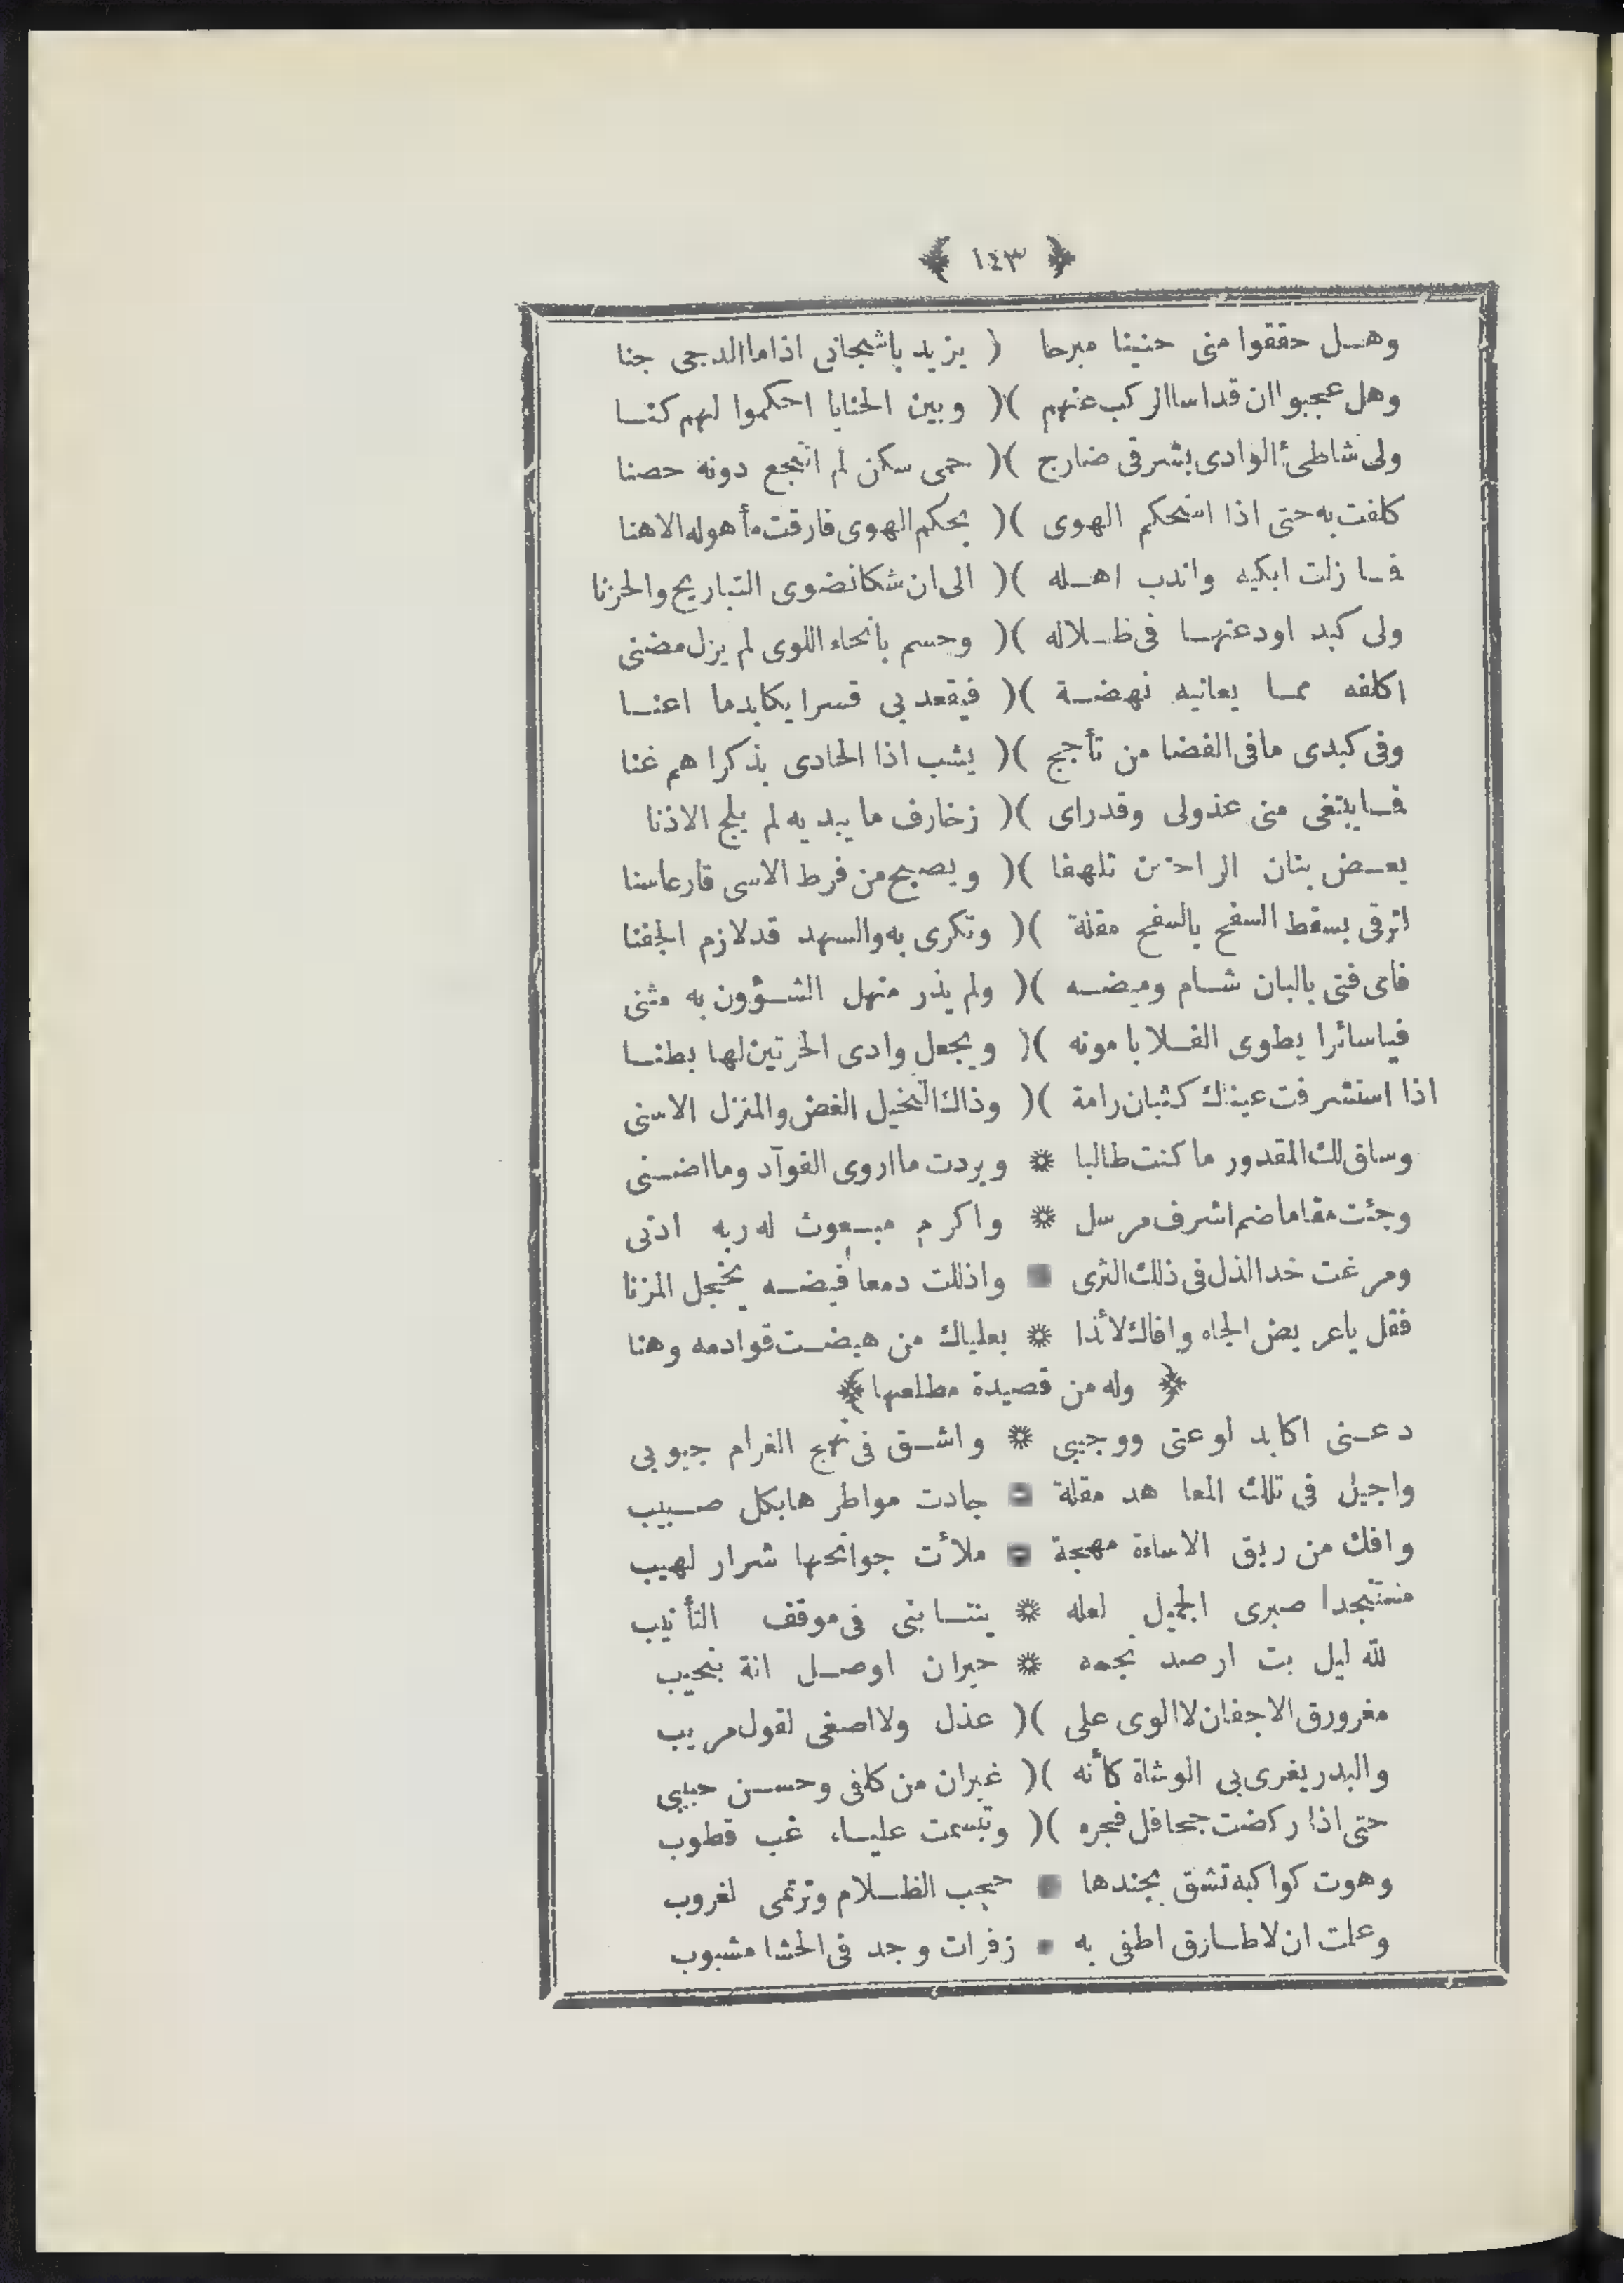 ﴿ ١٤٣ ﴾
وهل حققوا منى حنينا مبرحا ( يزيد باشجانى اذا ما الدجى جنا
وهل عجبوا ان قد اسا الركب عنهم )( وبين الحنايا احكموا لهم كنا
ولى شاطئ الوادى بشرقى ضارج )( حمى سكن لم انتجع دونه حصنا
كلفت به حتى اذا استحكم الهوى )( بحكم الهوى فارقت مأهوله الاهنا
فما زلت ابكيه واندب اهله )( الى ان شكا نضوى التباريح والحزنا
ولى كبد اودعتها فى ظلاله )( وجسم بانحاء اللوى لم يزل مضنى
اكلفه مما يعانيه نهضة )( فيقعد بى قسرا يكابد ما اعنا
وفى كبدى ما فى الغضا من تأجج )( يشب اذا الحادى بذكراهم غنا
فما يبتغى منى عذولى وقد راى )( زخارف ما يبديه لم يلج الاذنا
يعض بنان الراحتين تلهفا )( ويصبح من فرط الاسى قارعا سنا
اترقى بسقط السفح بالسفح مقلة )( وتكرى به والسهد قد لازم الجفنا
فاى فتى بالبان شام وميضه )( ولم يذر منهل الشؤون به مثنى
فيا سائرا يطوى الفلا بامونه )( ويجعل وادى الحرتين لها بطنا
اذا استشرفت عيناك كثبان رامة )( وذاك النخيل الغض والمنزل الاسنى
وساق لك المقدور ما كنت طالبا * وبردت ما اروى الفوآد وما اضنى
وجئت مقاما ضم اشرف مرسل * واكرم مبعوث له ربه ادنى
ومرغت خد الذل فى ذلك الثرى * واذللت دمعا فيضه يخجل المزنا
فقل ياعريض الجاه وافاك لائذا * بعلياك من هيضت قوادمه وهنا
﴿ وله من قصيدة مطلعها ﴾
دعنى اكابد لوعتى ووجيبى * واشق فى نهج الغرام جيوبى
واجيل فى تلك المعاهد مقلة * جادت مواطرها بكل صبيب
وافك من ربق الاساءة مهجة * ملأت جوانحها شرار لهيب
مستنجدا صبرى الجميل لعله * ينتابنى فى موقف التأنيب
لله ليل بت ارصد نجمه * حيران اوصل انة بنحيب
مغرورق الاجفان لا الوى على )( عذل ولا اصغى لقول مريب
والبدر يغرى بى الوشاة كأنه )( غيران من كلفى وحسن حبيبى
حتى اذا ركضت جحافل فجره )( وتبسمت علياء غب قطوب
وهوت كواكبه تشق بجندها * حجب الظلام وترتمى لغروب
وعلمت ان لا طارق اطفى به * زفرات وجد فى الحشا مشبوب